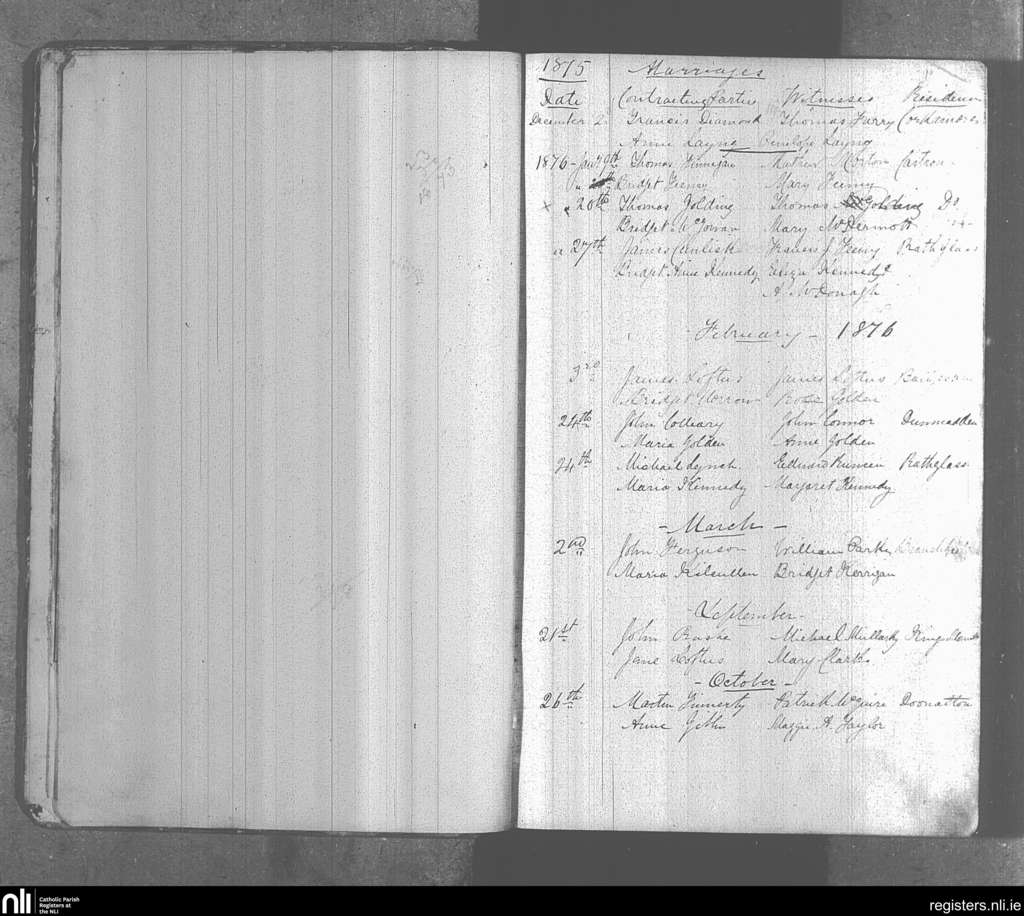 1875 Marriages
Date Contracting Parties Witnesses Residence
December 2. Francis Diamond Thomas Farry
Anne Layng Penelope Layng
1876 - Jany 9th Thomas Finnegan Mathew Morton
Bridget Feeny Mary Feeny
x " 20th Thomas Golding Thomas Golding Do
Bridget McGowan Mary McDermott
" 27th James Francis J Feeny Rathglass
Bridget Anne Kennedy Eliza Kennedy
A. McDonagh
- February - 1876
3rd James Loftus James Loftus
Bridget Rose Golden
24th John Colleary John Connor Dunmadden
Maria Golden Anne Golden
24th Michael Lynch Edward Rathglass
Maria Kennedy Margaret Kennedy
- March -
2nd John Ferguson William Parke
Maria Kilcullen Bridget Kerrigan
- September -
21st John Michael
Jane Loftus Mary Clarke
- October -
26th Martin Finnerty Patrick McGuire
Anne Maggie A. Taylor
nli
Catholic Parish
Registers at
the NLI
registers.nli.ie